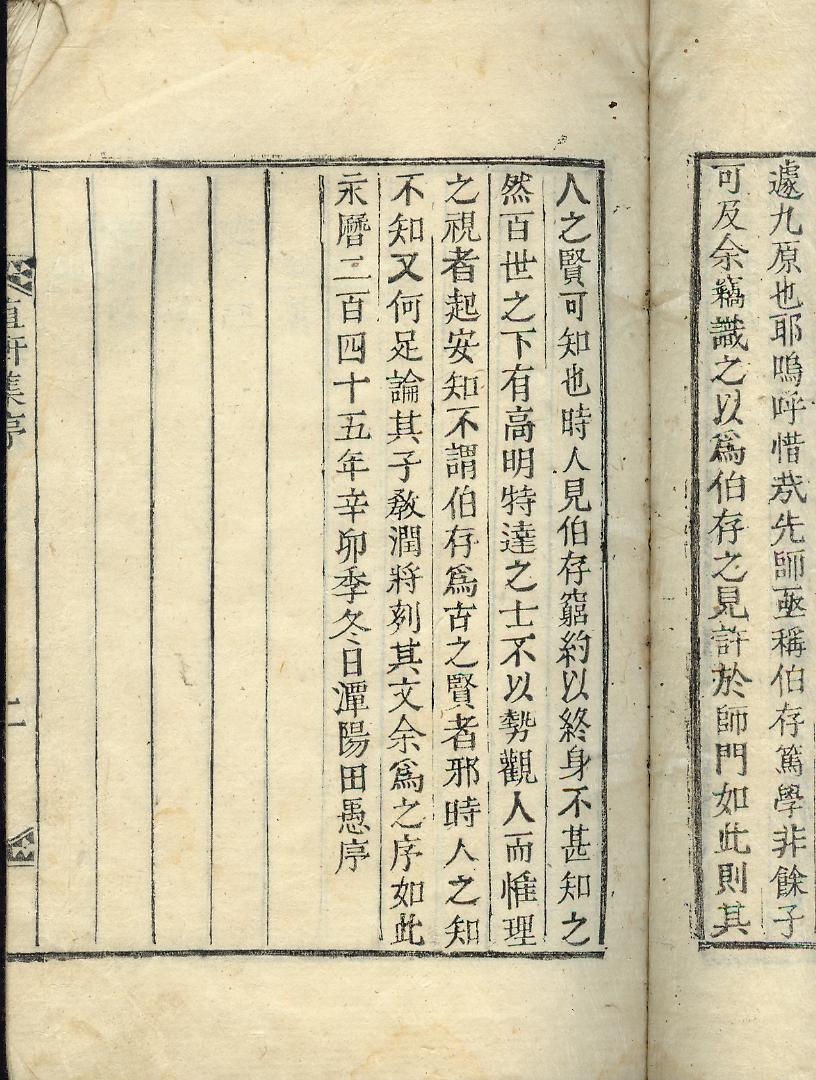 遽九原也耶嗚呼惜㢤先師亟稱伯存篤學非餘子
可及余竊識之以爲伯存之見許於師門如此則其
人之賢可知也時人見伯存窮約以終身不甚知之
然百世之下有高明特達之士不以勢觀人而惟理
之視者起安知不謂伯存爲古之賢者邪時人之知
不知又何足論其子敎潤將刻其文余爲之序如此
永曆二百四十五年辛卯季冬日潭陽田愚序
直軒集序
二